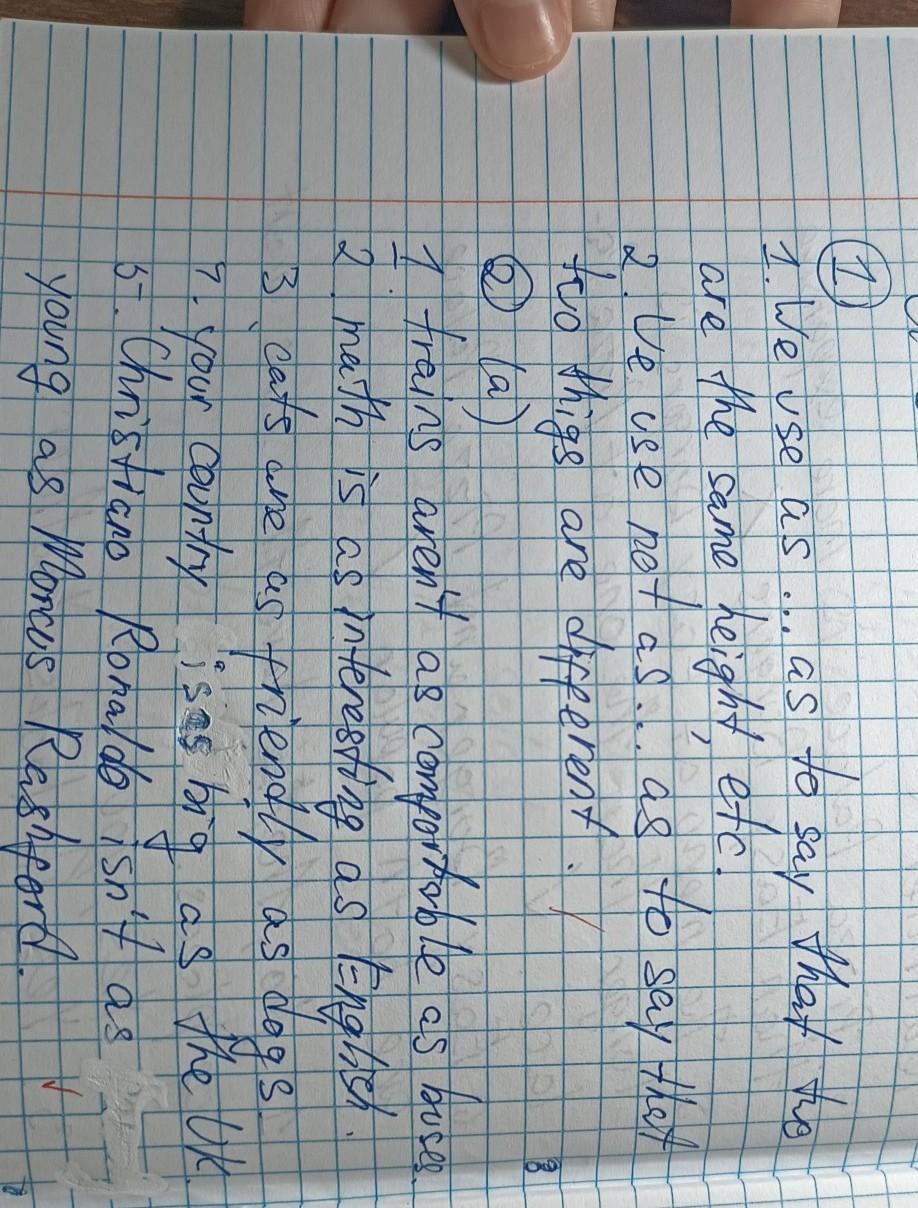 ①
1. We use as... as to say that two
are the same height, etc.
2. We use not as... as to say that
two thigs are different.
② (a)
1. trains aren't as comfortable as buses.
2. math is as interesting as English.
3. cats are as friendly as dogs.
4. your country is as big as the UK.
5. Christiano Ronaldo isn't as
young as Marcus Rashford.